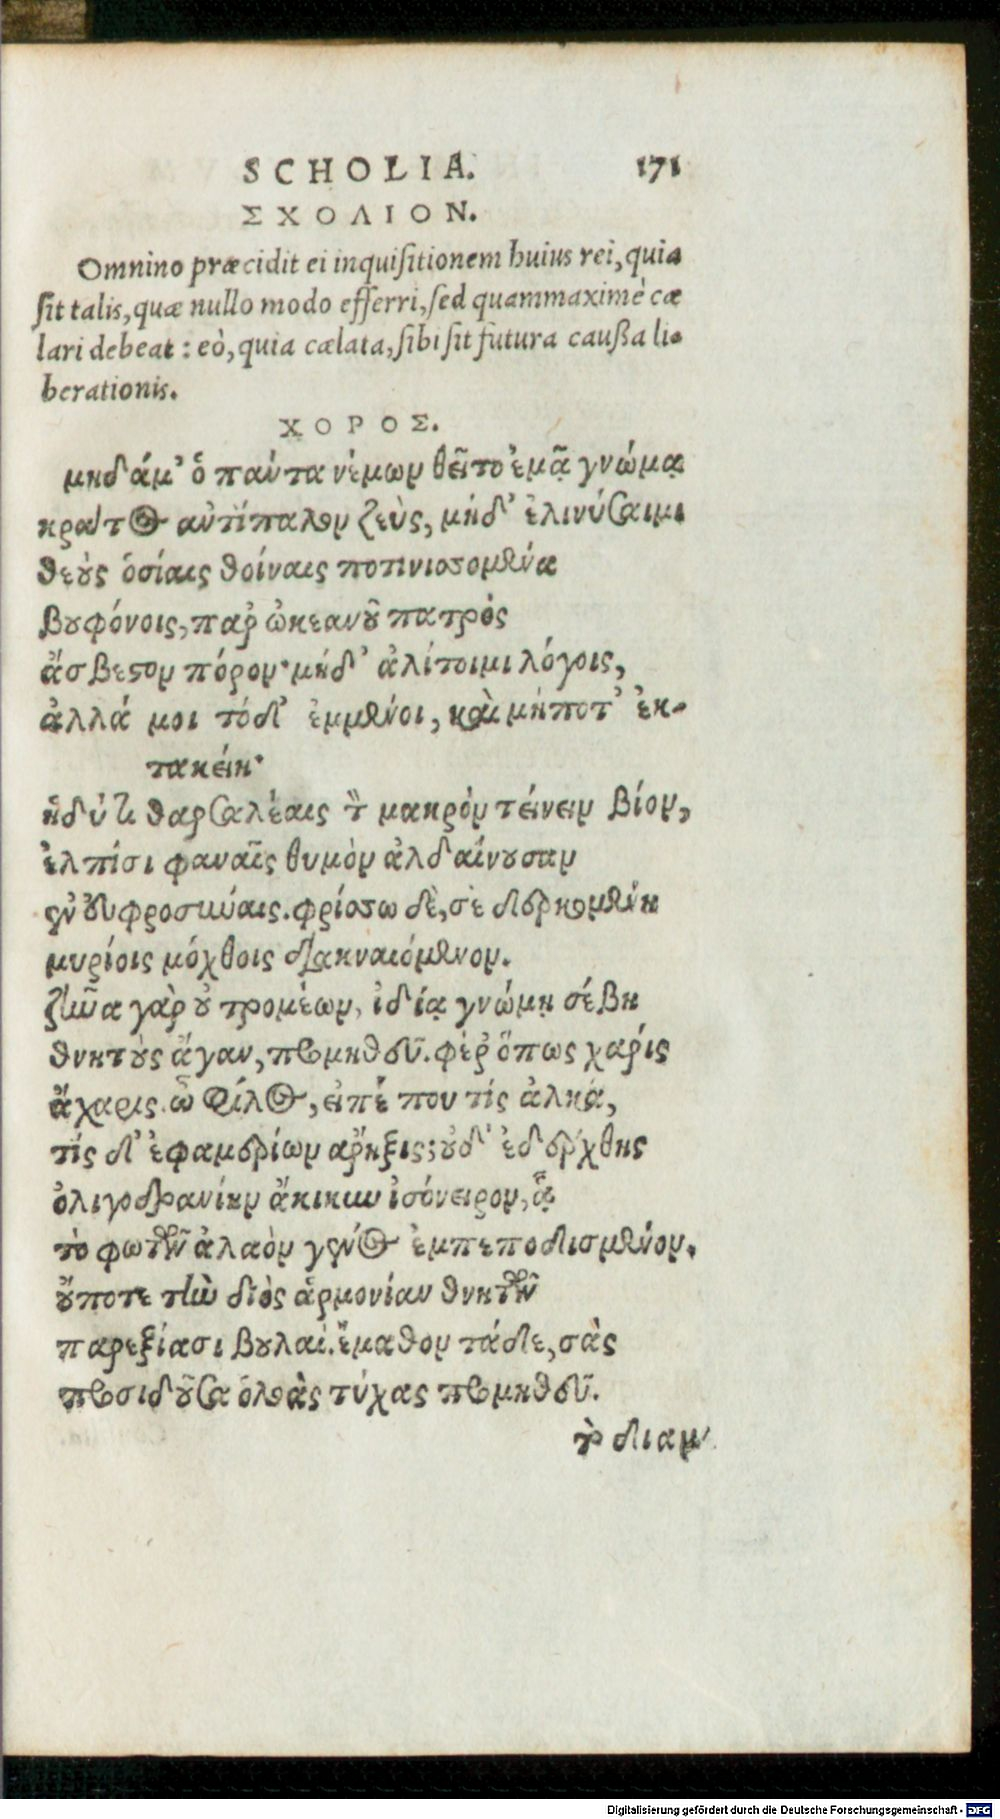 SCHOLIA. 171
ΣΧΟΛΙΟΝ.
Omnino præcidit ei inquisitionem huius rei, quia
sit talis, quæ nullo modo efferri, sed quammaximè cæ
lari debeat: eò, quia cælata, sibi sit futura caußa li-
berationis.
ΧΟΡΟΣ.
μηδάμ' ὁ πάντα νέμων θεῖτο ἐμᾷ γνώμᾳ
κράτος αὐτίπαλον ζεὺς, μήδ' ἐλινύσαιμι
θεοὺς ὁσίαις θοίναις ποτινισσομένα
βουφόνοις, παρ' ὠκεανοῦ πατρὸς
ἄσβεστον πόρον· μήδ' ἀλίτοιμι λόγοις,
ἀλλά μοι τόδ' ἐμμένοι, καὶ μήποτ' ἐκ-
τακείη·
ἡδύ τι θαρσαλέαις τὸν μακρὸν τείνειν βίον,
ἐλπίσι φαναῖς θυμὸν ἀλδαίνουσαν
ἐν εὐφροσύναις. φρίσσω δὲ, σὲ δερκομένη
μυρίοις μόχθοις διακναιόμενον.
ζῆνα γὰρ οὐ τρομέων, ἰδίᾳ γνώμῃ σέβῃ
θνητοὺς ἄγαν, προμηθεῦ. φέρ' ὅπως χάρις
ἄχαρις ὦ φίλος, εἰπέ που τίς ἀλκά,
τίς δ' ἐφαμερίων ἄρηξις; οὐδ' ἐδέρχθης
ὀλιγοδρανίην ἄκικυν ἰσόνειρον, ᾇ
τὸ φωτῶν ἀλαὸν γένος ἐμπεποδισμένον.
οὔποτε τὴν διὸς ἁρμονίαν θνητῶν
παρεξίασι βουλαί. ἔμαθον τάδε, σὰς
προσιδοῦσα ὀλοὰς τύχας προμηθεῦ.
τὸ διαμ
Digitalisierung gefördert durch die Deutsche Forschungsgemeinschaft - DFG